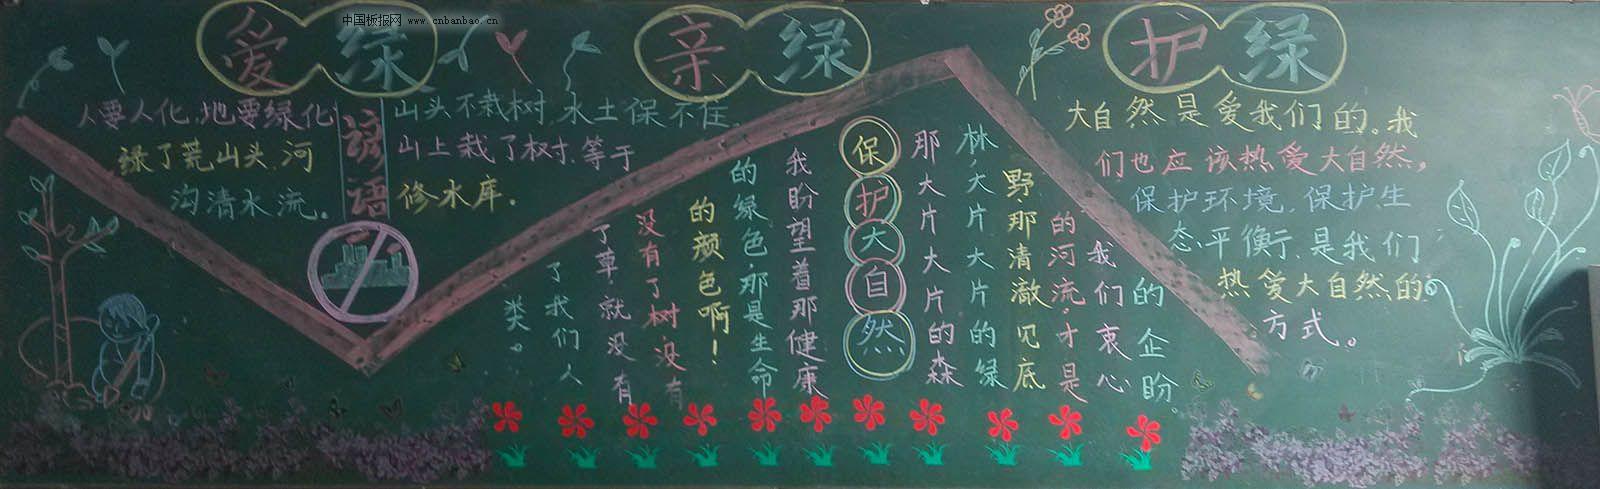 中国板报网 www.cnbanbao.cn
爱绿
亲绿
护绿
人要人化,地要绿化
绿了荒山头,河
沟清水流。
谚语
山头不栽树,水土保不住。
山上栽了树,等于
修水库。
保护大自然
我盼望着那健康
的绿色,那是生命
的颜色啊!
没有了树,没有
了草,就没有
了我们人
类。
那大片大片的森
林,大片大片的绿
野,那清澈见底
的河流,才是
我们衷心
的企盼。
大自然是爱我们的。我
们也应该热爱大自然,
保护环境,保护生
态平衡,是我们
热爱大自然的
方式。